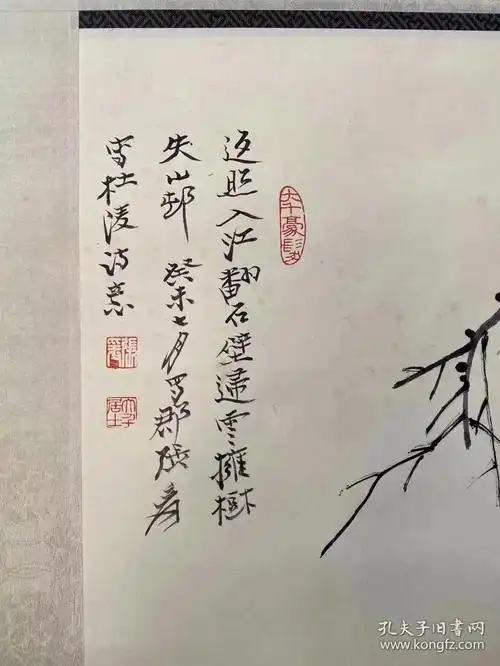 大千豪髮
返照入江翻石壁歸雲擁樹
失山邨 癸未七月蜀郡張爰
寫杜陵詩意
張爰
大千居士
孔夫子旧书网
www.kongfz.com